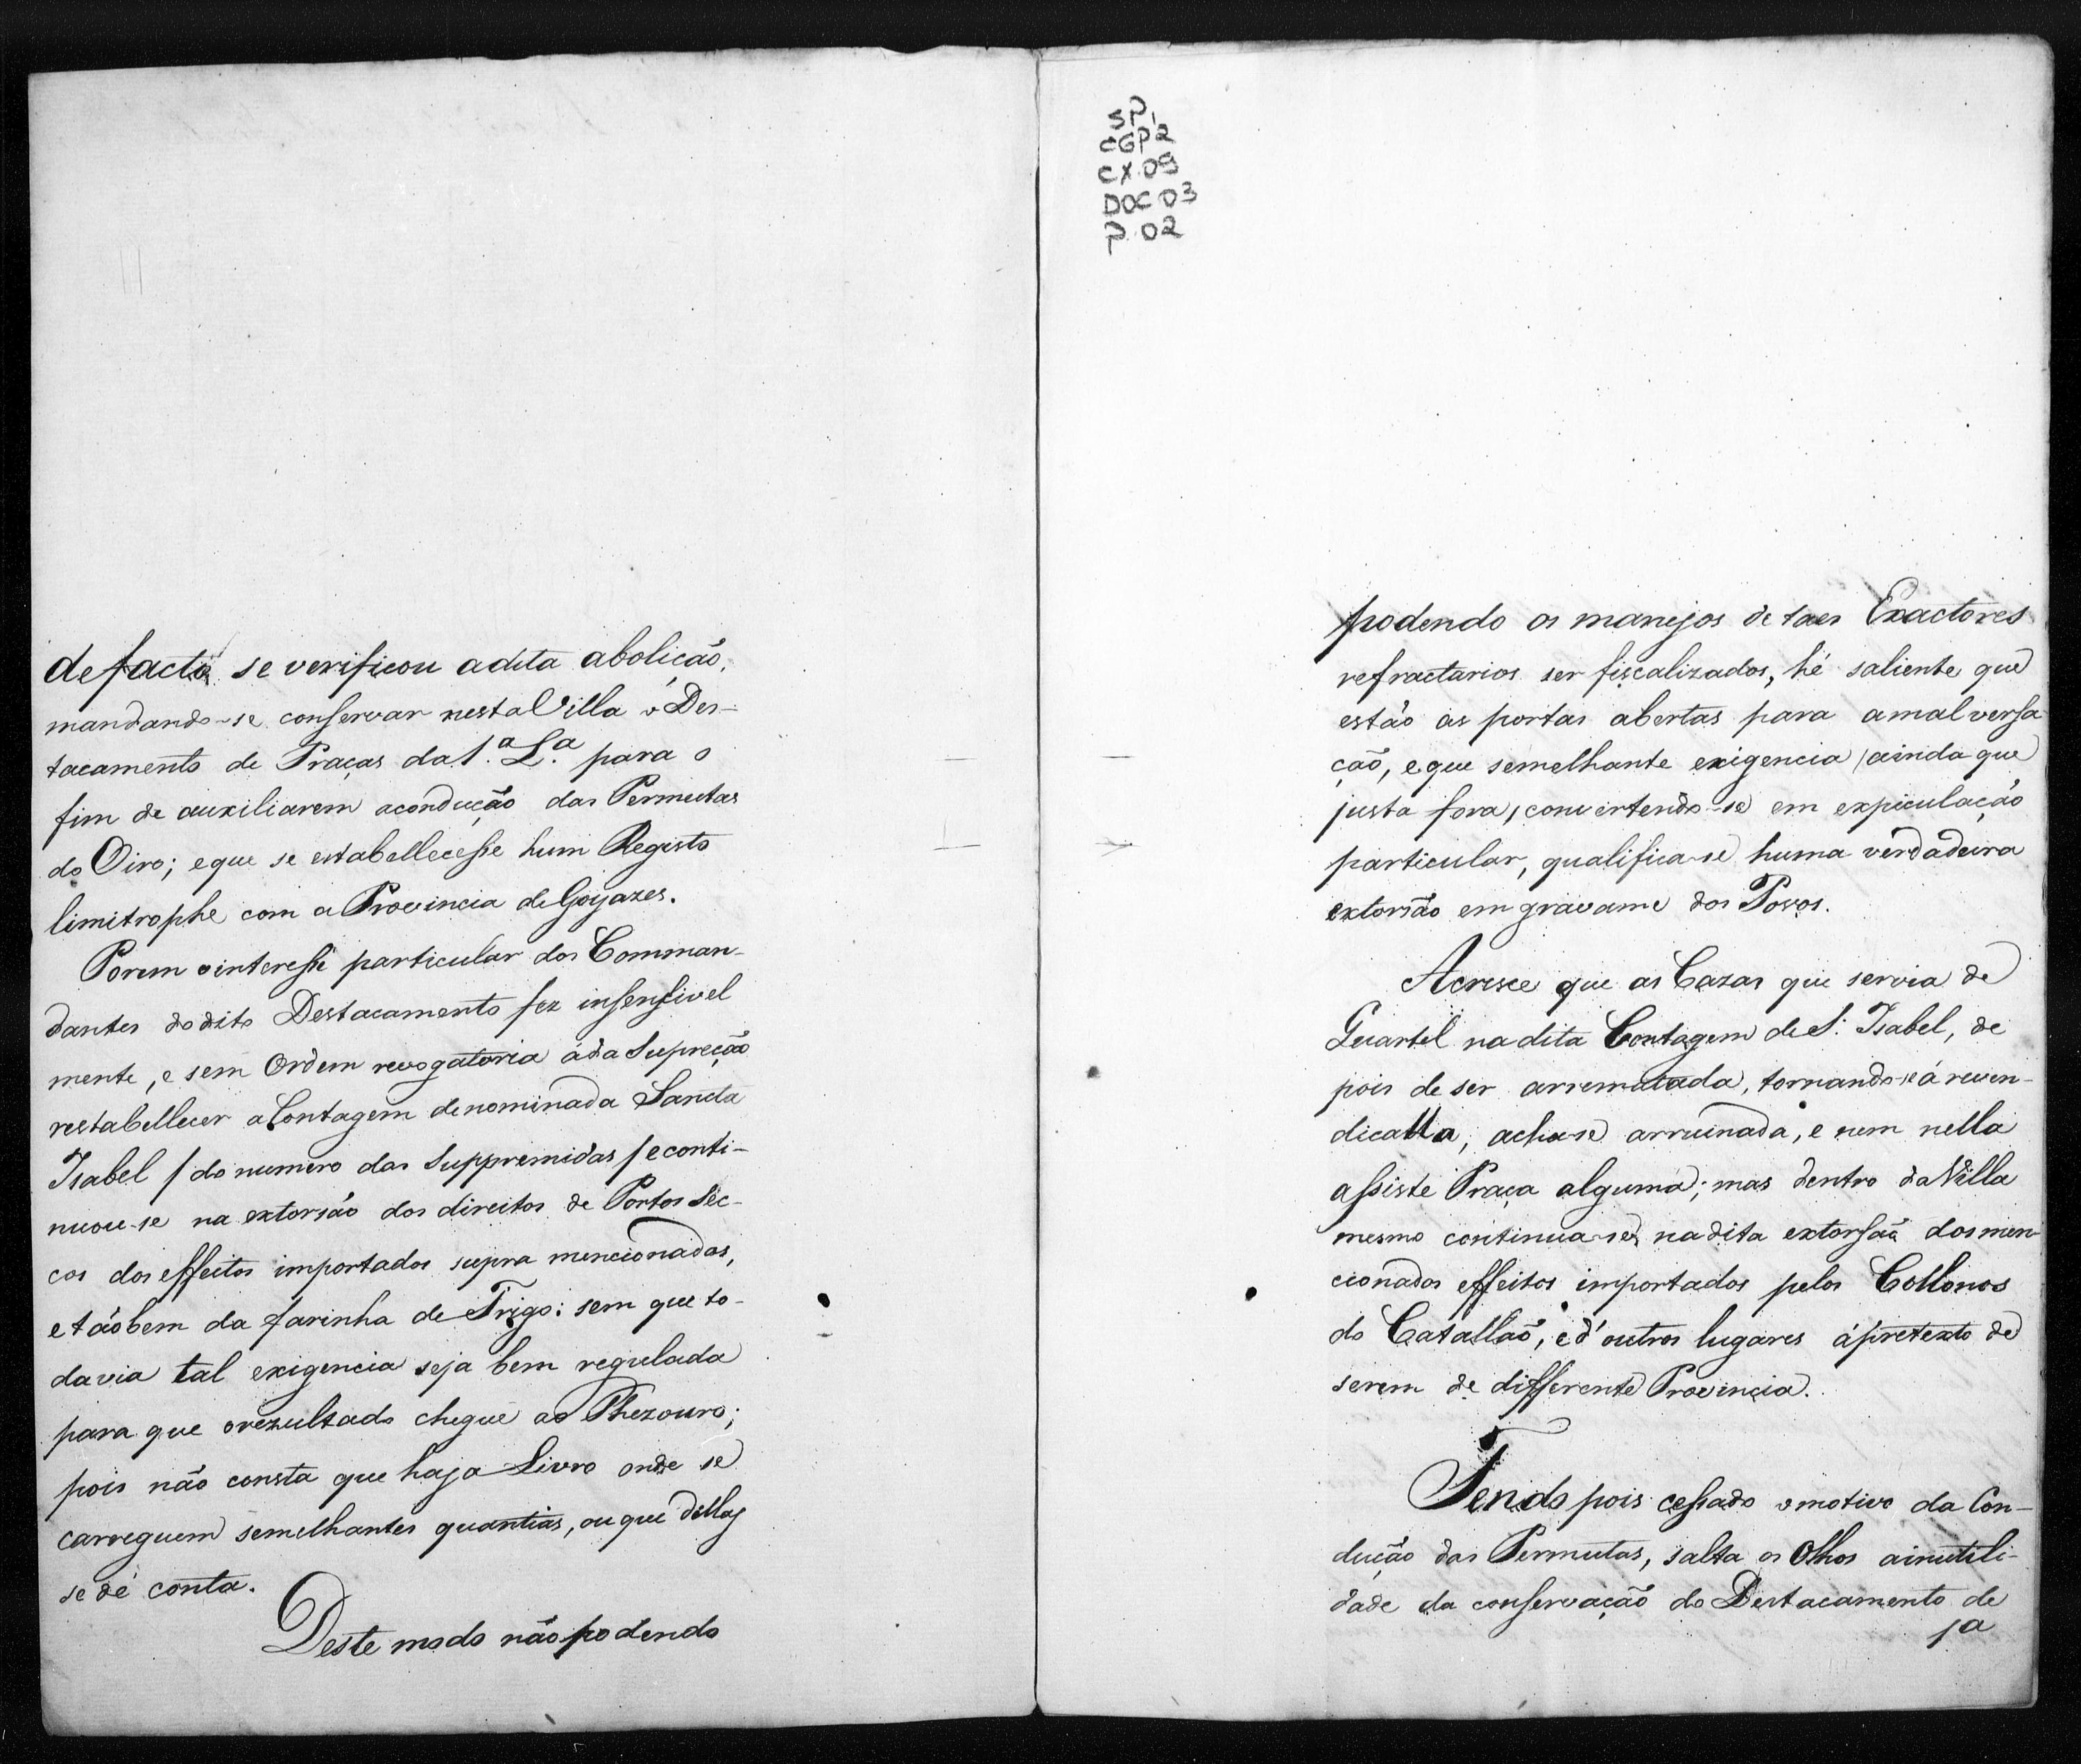 de facto se verificou adita abolição,
mandando-se conservar nesta Villa o Des-
tacamento de Praças da 1.ª L.ª para o
fim de auxiliarem acondução das Permutas
do Oiro; eque se estabellecesse hum Registo
limitrophe com a Provincia de Goyazes.
Porem ointeresse particular dos Comman-
dantes do dito Destacamento fez insensivel
mente, e sem Ordem revogatoria áda Supreção
restabellecer a Contagem denominada Sancta
Isabel / do numero das Suppremidas / e conti-
nuou-se na extorsão dos direitos de Portos Sec-
cos dos effeitos importados supra mencionados,
e tãobem da farinha de Trigo: sem que to-
davia tal exigencia seja bem regulada
para que orezultado chegue ao Thezouro;
pois não consta que haja Livro onde se
carreguem semelhantes quantias, ou que dellas
se dê conta.
Deste modo não podendo
SP1
CGP2
CX.09
DOC 03
P. 02
podendo os manejos de taes Exactores
refractarios ser fiscalizados, hé saliente que
estão as portas abertas para amalversa
ção, eque semelhante exigencia / ainda que
justa fora, convertendo-se em expiculação
particular, qualifica-se huma verdadeira
extorsão em gravame dos Povos.
Acresce que as Cazas que servia de
Quartel na dita Contagem de S. Isabel, de
pois de ser arrematada, tornando-se á reven-
dicalla, acha-se arruinada, e nem nella
assiste Praça alguma; mas dentro da Villa
mesmo continua-se na dita extorsão dos men
cionados effeitos importados pelos Collonos
do Catallão, e d'outros lugares ápretexto de
serem de differente Provincia.
Tendo pois cessado omotivo da Con-
dução das Permutas, salta os Olhos ainutili-
dade da conservação do Destacamento de
1a